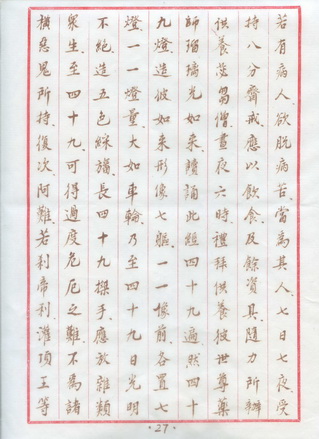 若有病人欲脫病苦當為其人七日七夜受
持八分齋戒應以飲食及餘資具隨力所辦
供養苾芻僧晝夜六時禮拜供養彼世尊藥
師瑠璃光如來讀誦此經四十九遍然四十
九燈造彼如來形像七軀一一像前各置七
燈一一燈量大如車輪乃至四十九日光明
不絕造五色綵旛長四十九搩手應放雜類
眾生至四十九可得過度危厄之難不為諸
橫惡鬼所持復次阿難若剎帝利灌頂王等
·27·